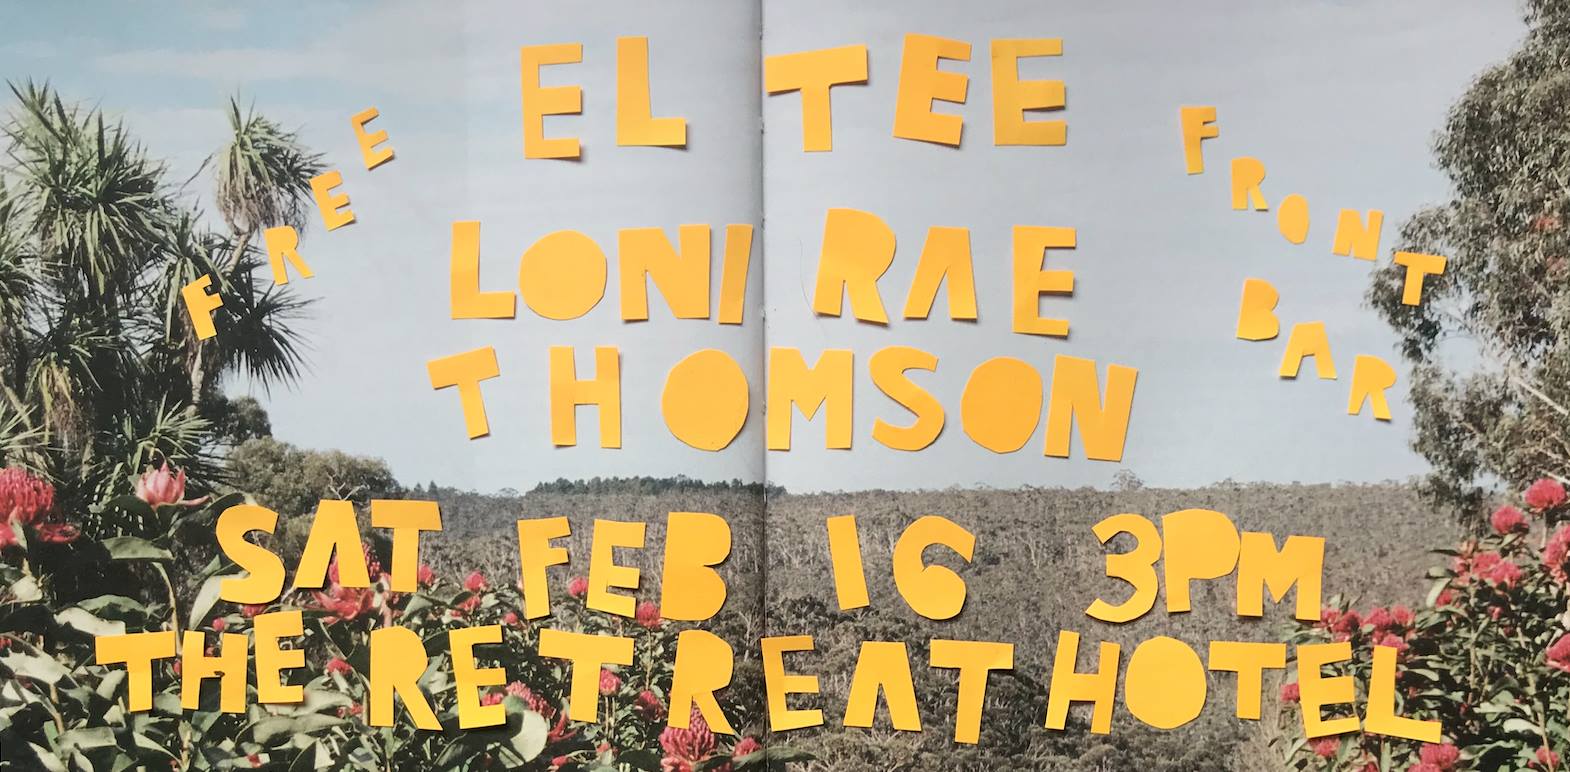 EL TEE
FREE
FRONT
BAR
LONI RAE
THOMSON
SAT FEB 16 3PM
THE RETREAT HOTEL